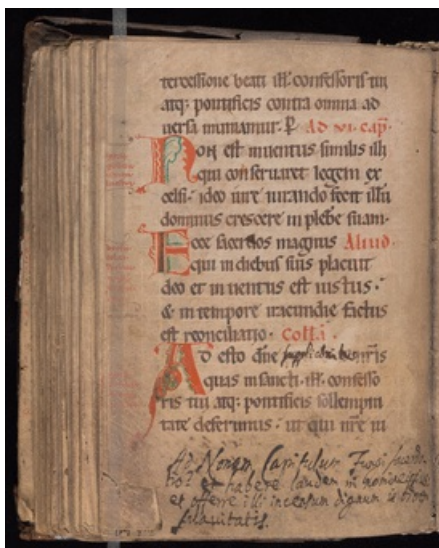 tercessione beati ill. confessoris tui
atq; pontificis contra omnia ad
uersa muniamur. P Ad vi. cap.
Non est inuentus similis illi
qui conseruaret legem ex
celsi. ideo iure iurando fecit illu
dominus crescere in plebe suam.
Ecce sacerdos magnus Aliud.
qui in diebus suis placuit
deo et inuentus est iustus.
& in tempore iracundie factus
est reconciliatio. Colla.
Ad esto dne supplicationib nris
quas in sancti. ill. confesso
ris tui atq; pontificis sollempni
tate deferimus. ut qui nre iu
Ad Nonam Capitulum Fungi sacerdo
tio et habere laudem in nomine ipsius
et offerre illi incensum dignum in odorem
suauitatis.